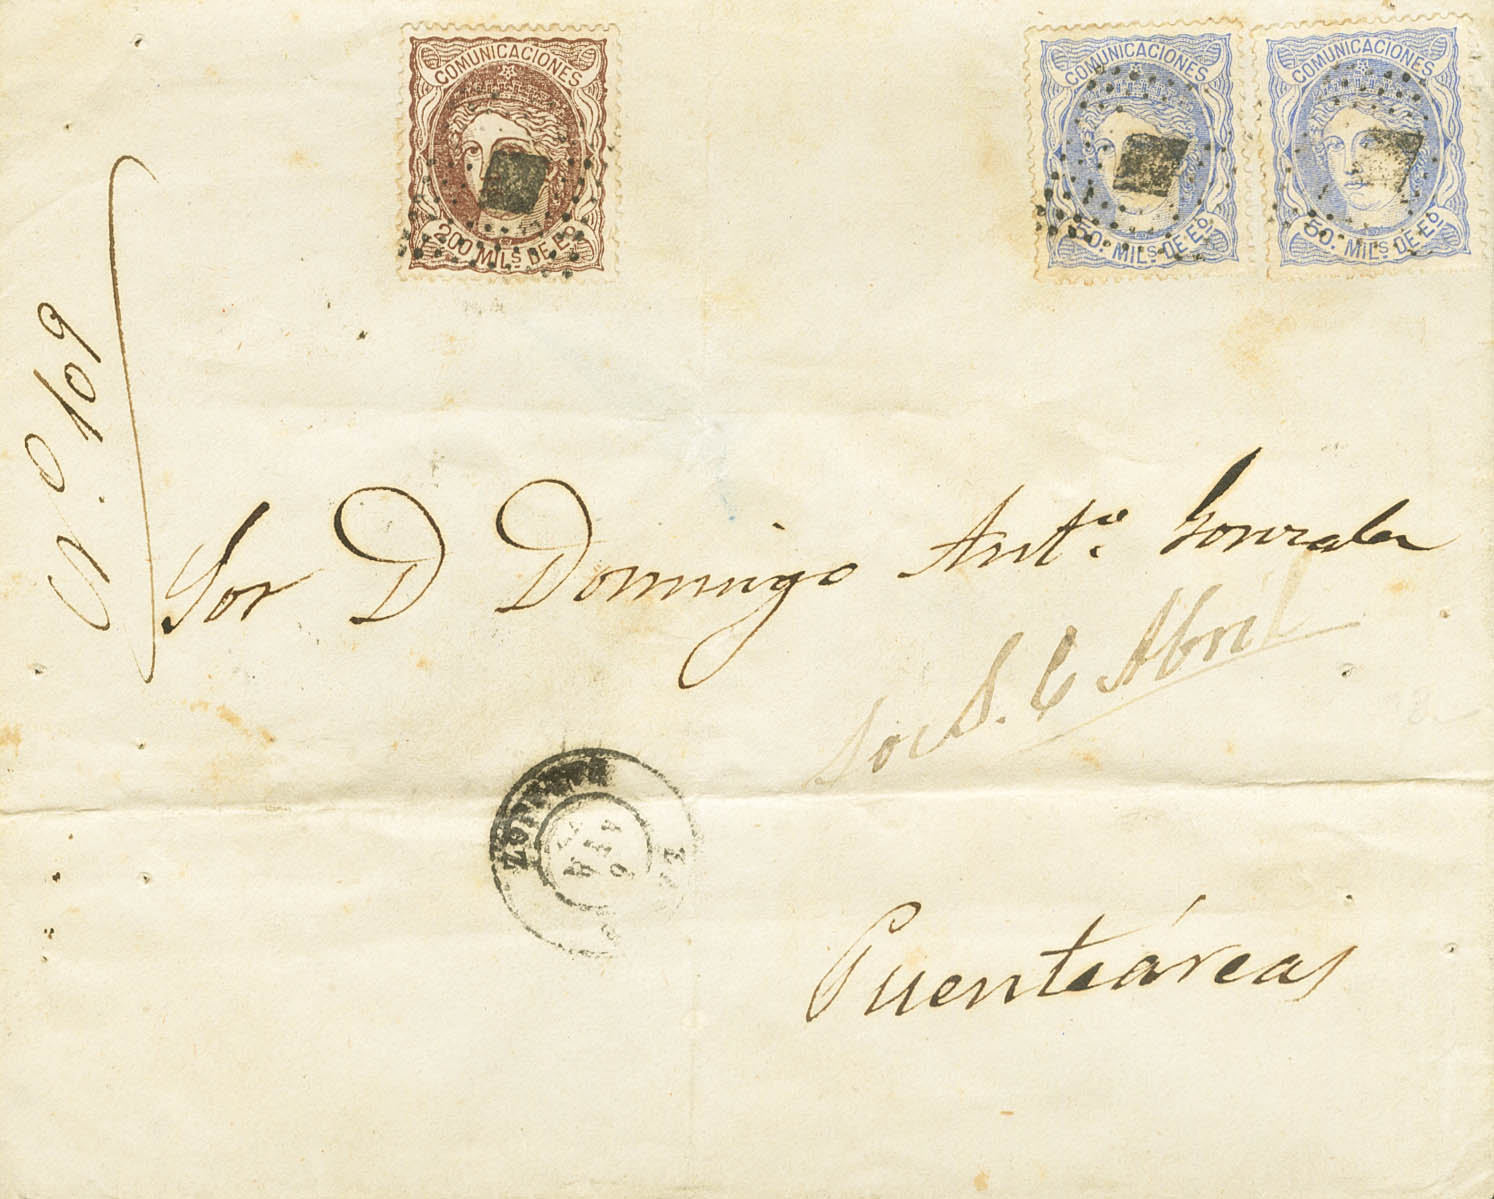 COMUNICACIONES
200 MILS DE Eº
COMUNICACIONES
50. MILS DE Eº
COMUNICACIONES
50. MILS DE Eº
Nº. 109
Sor D Domingo Antº. Gonzalez
6 Abril
Puenteáreas